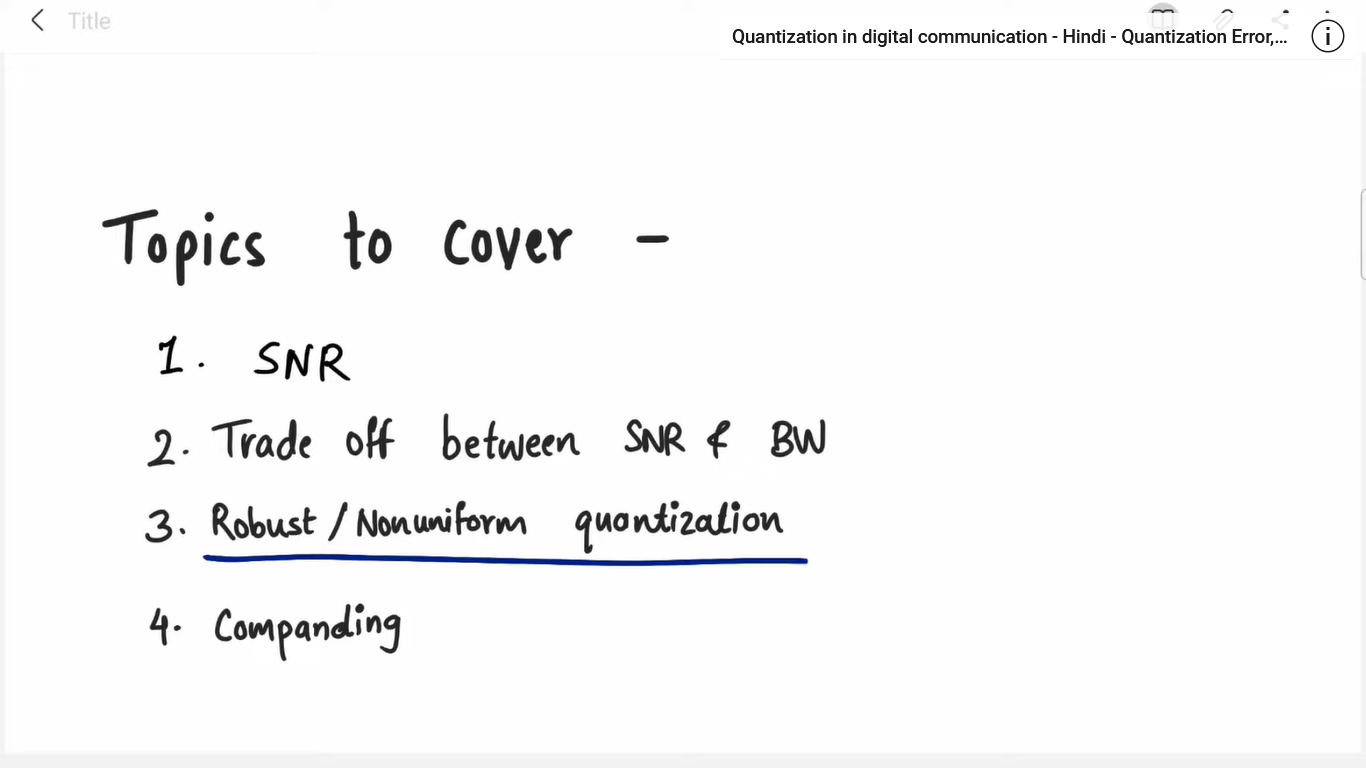 Title
Quantization in digital communication - Hindi - Quantization Error,...
Topics to cover -
1. SNR
2. Trade off between SNR & BW
3. Robust / Nonuniform quantization
4. Companding